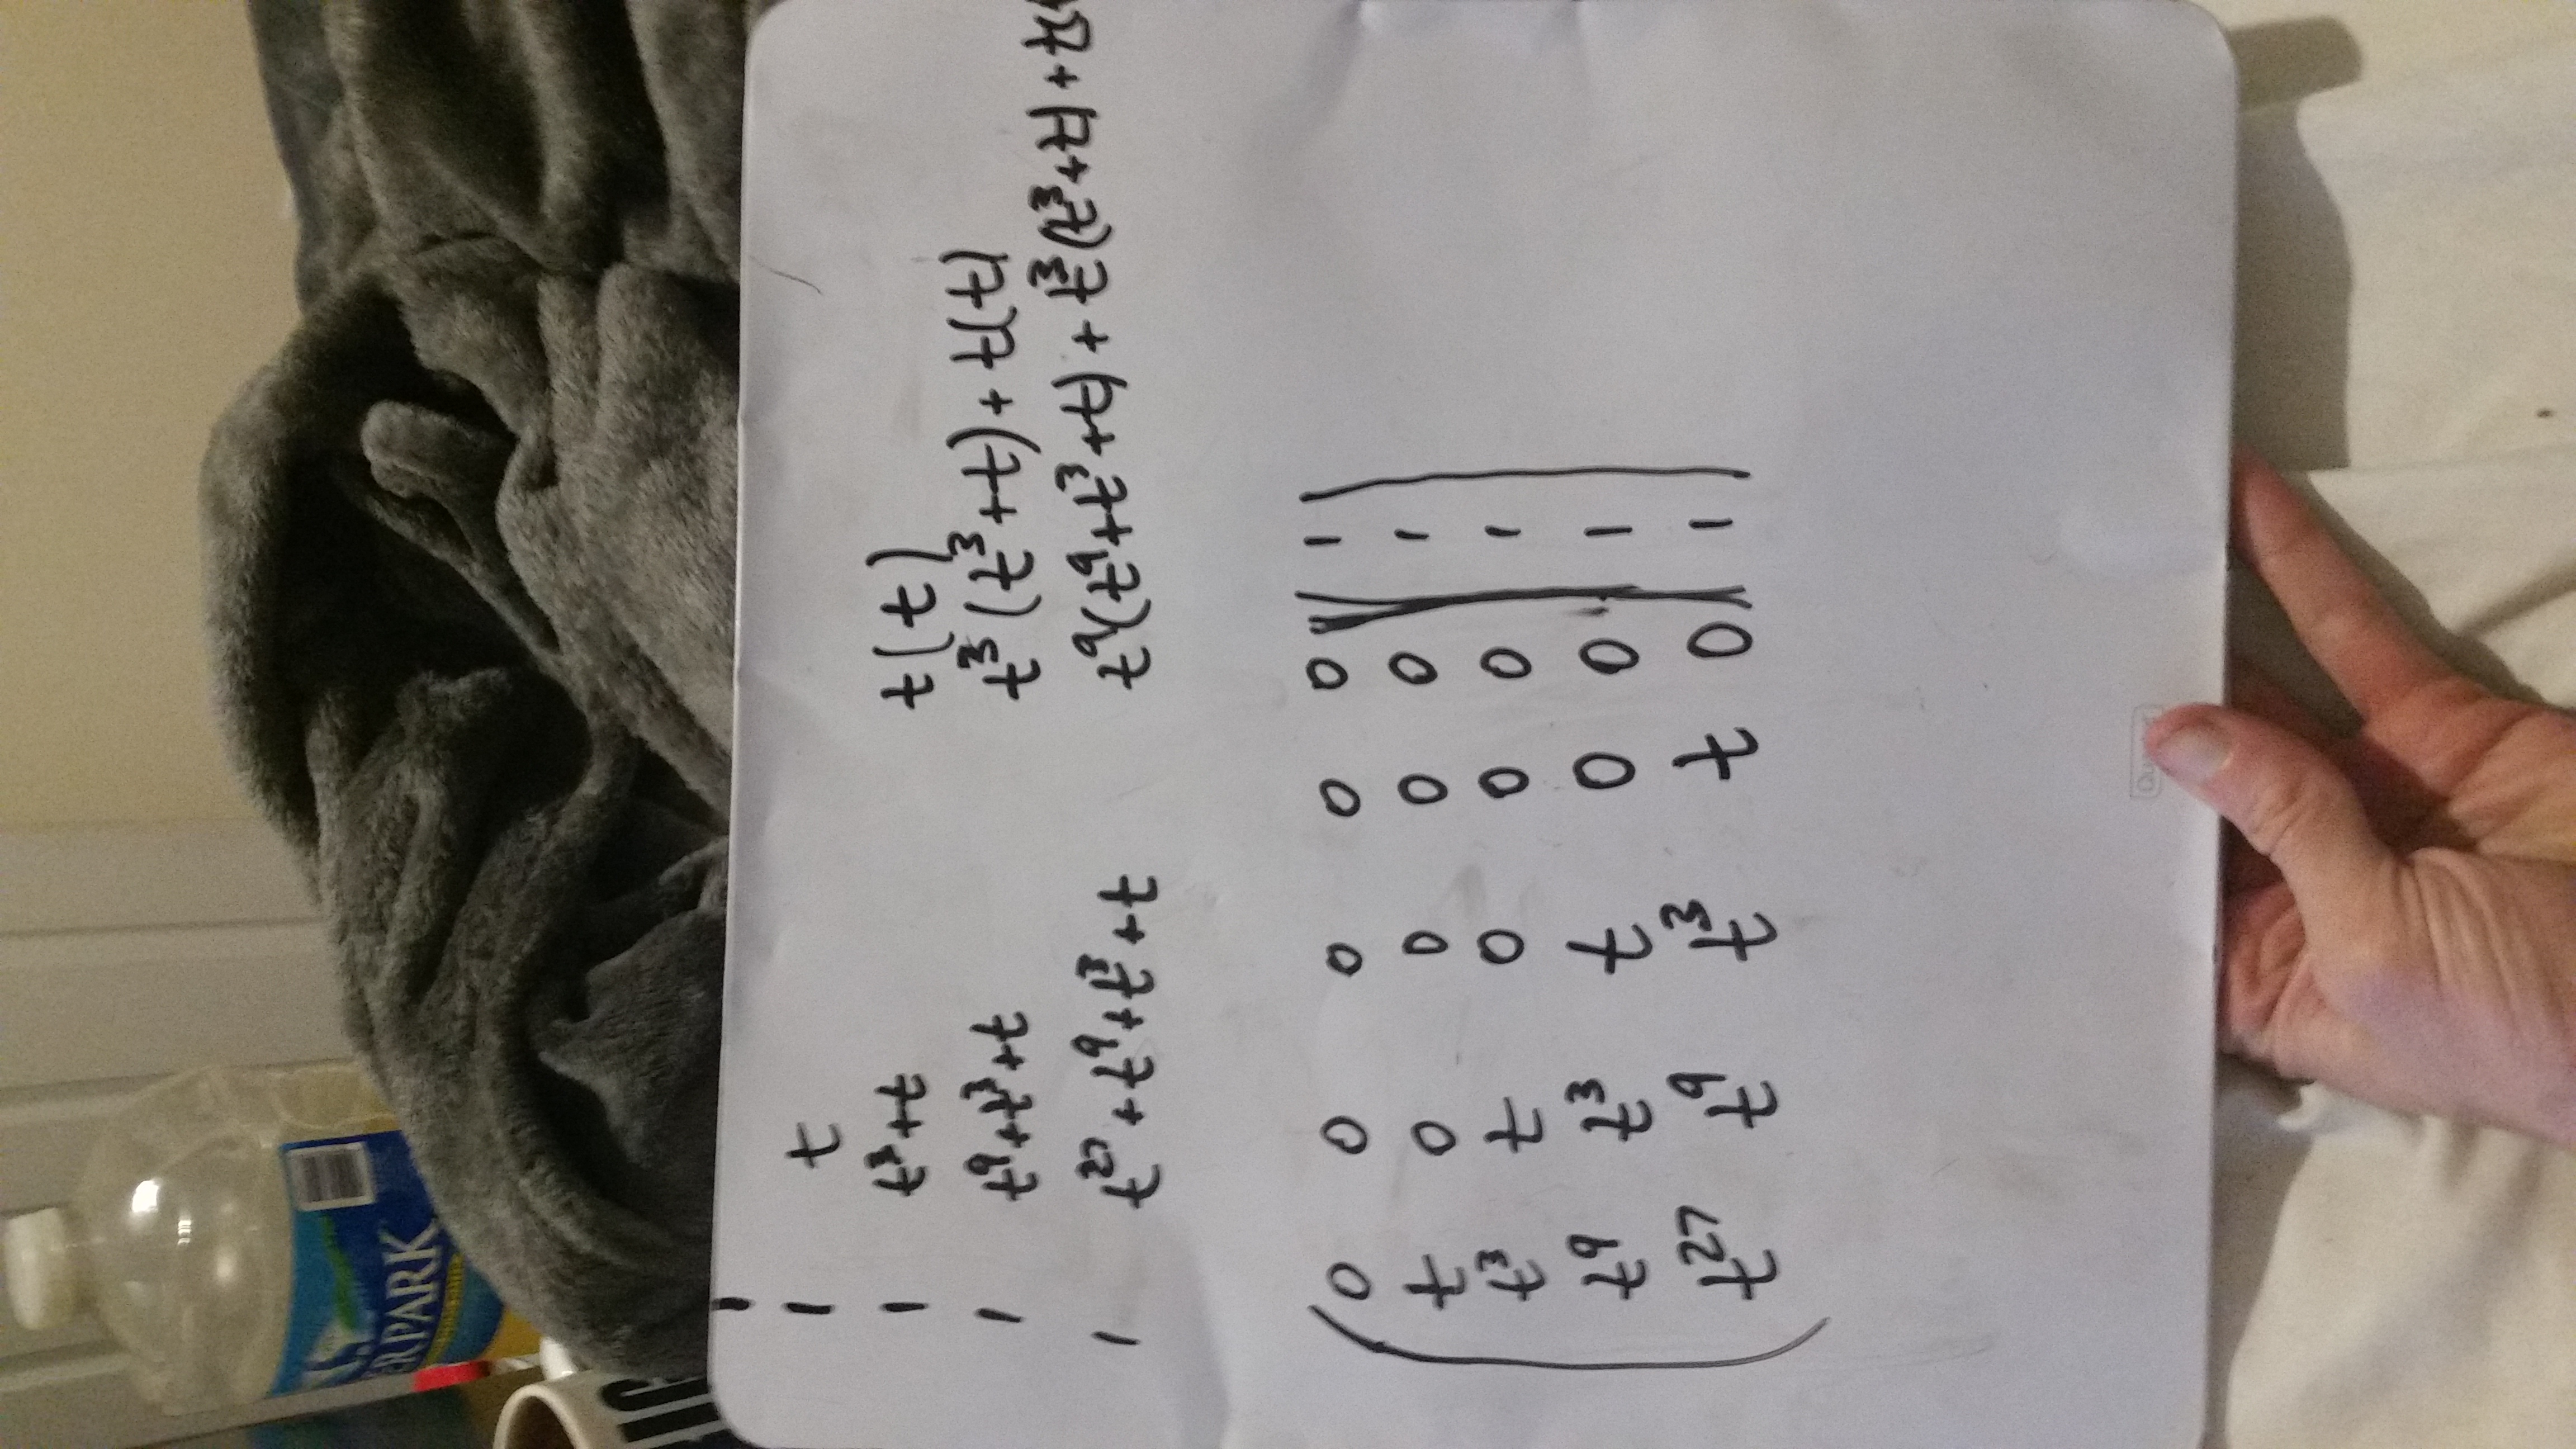 ERPARK
1
1 t
1 t³+t t(t)
1 t⁹+t³+t t³(t³+t)+t(t)
1 t²⁷+t⁹+t³+t t⁹(t⁹+t³+t)+t³(t³+t)+t(
0 0 0 0 0 1
t 0 0 0 0 1
t³ t 0 0 0 1
t⁹ t³ t 0 0 1
t²⁷ t⁹ t³ t 0 1